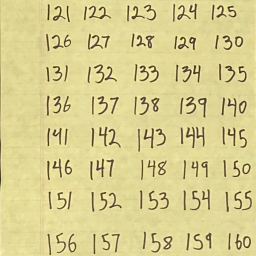 121 122 123 124 125
126 127 128 129 130
131 132 133 134 135
136 137 138 139 140
141 142 143 144 145
146 147 148 149 150
151 152 153 154 155
156 157 158 159 160